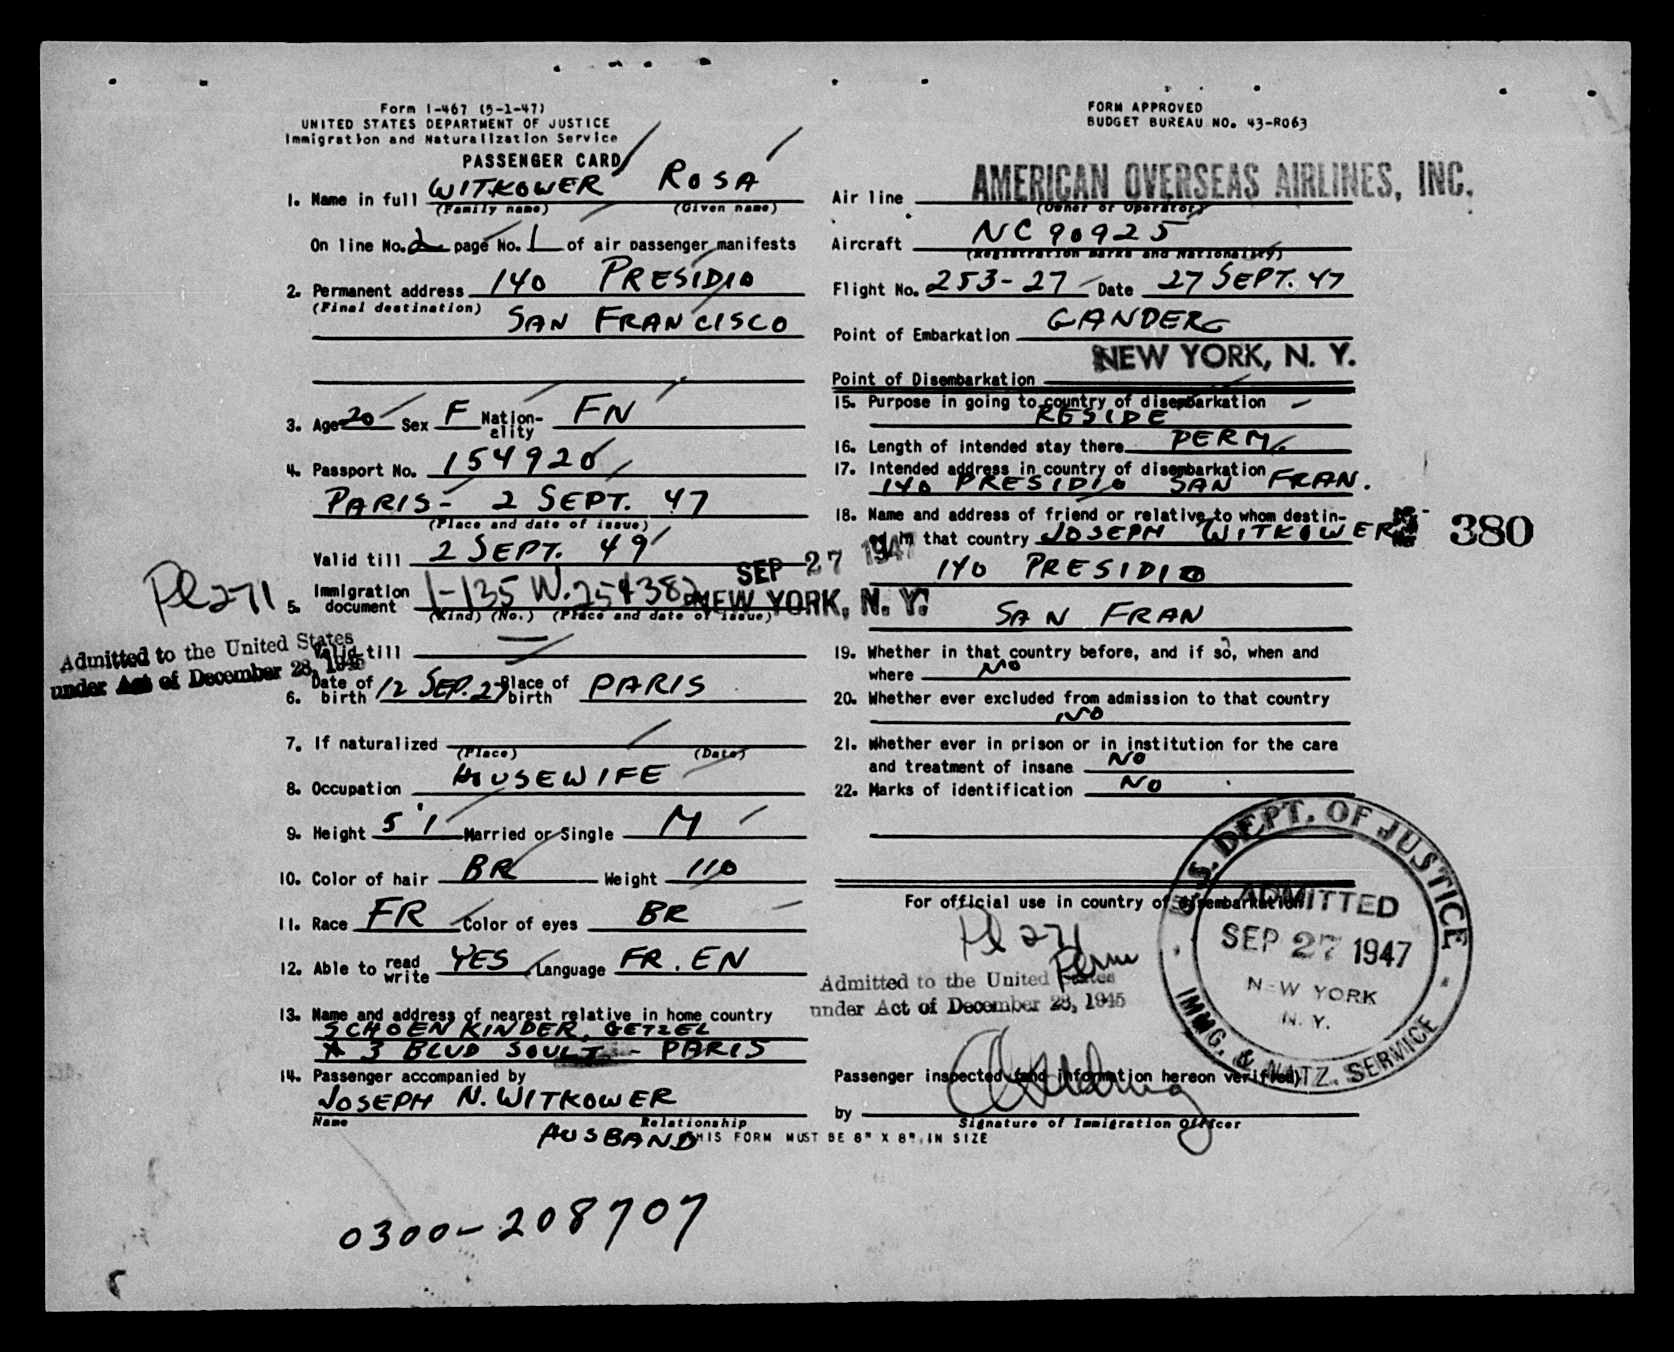 Form I-467 (5-1-47)
UNITED STATES DEPARTMENT OF JUSTICE
Immigration and Naturalization Service
PASSENGER CARD
1. Name in full WITKOWER ROSA
(Family name) (Given name)
On line No. 2 page No. 1 of air passenger manifests
2. Permanent address 140 PRESIDIO
(Final destination) SAN FRANCISCO
3. Age 20 Sex F Nation-ality FN
4. Passport No. 154920
PARIS - 2 SEPT. 47
(Place and date of issue)
Valid till 2 SEPT. 49
SEP 27 1947
NEW YORK, N. Y.
5. Immigration document I-135 W.
(Kind) (No.) (Place and date of issue)
Pl 271
Admitted to the United States
under Act of December 28, 1945
Valid till
6. Date of birth 12 SEP. 27 Place of birth PARIS
7. If naturalized
(Place) (Date)
8. Occupation HOUSEWIFE
9. Height 5'1 Married or Single M
10. Color of hair BR Weight 110
11. Race FR Color of eyes BR
12. Able to read write YES Language FR. EN
13. Name and address of nearest relative in home country
SCHOENKINDER, GETZEL
3 BLVD SOULT - PARIS
14. Passenger accompanied by
JOSEPH N. WITKOWER
Name Relationship
HUSBAND
THIS FORM MUST BE 8" X 8" IN SIZE
0300-208707
FORM APPROVED
BUDGET BUREAU NO. 43-R063
Air line AMERICAN OVERSEAS AIRLINES, INC.
(Owner or Operator)
Aircraft NC 90925
(Registration marks and Nationality)
Flight No. 253-27 Date 27 SEPT. 47
Point of Embarkation GANDER
NEW YORK, N. Y.
Point of Disembarkation
15. Purpose in going to country of disembarkation
RESIDE
16. Length of intended stay there PERM.
17. Intended address in country of disembarkation
140 PRESIDIO SAN FRAN.
18. Name and address of friend or relative to whom destin-
in that country JOSEPH WITKOWER
380
140 PRESIDIO
SAN FRAN
19. Whether in that country before, and if so, when and
where NO
20. Whether ever excluded from admission to that country
NO
21. Whether ever in prison or in institution for the care
and treatment of insane NO
22. Marks of identification NO
For official use in country of disembarkation
Pl 271
Perm
Admitted to the United States
under Act of December 28, 1945
U.S. DEPT. OF JUSTICE
ADMITTED
SEP 27 1947
NEW YORK
N. Y.
IMMG. & NATZ. SERVICE
Passenger inspected (and information hereon verified)
by
Signature of Immigration Officer